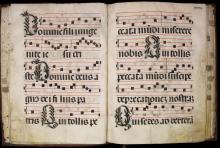 Domine fili unige
nite ie su cri
ste Domine deus a
gnus dei fili us pa
tris Qui tollis pe
ccata mūdi miserere
nobis Qui tollis
peccata mūdi suscipe
deprecationē nostrā
Qui sedes ad dexterā